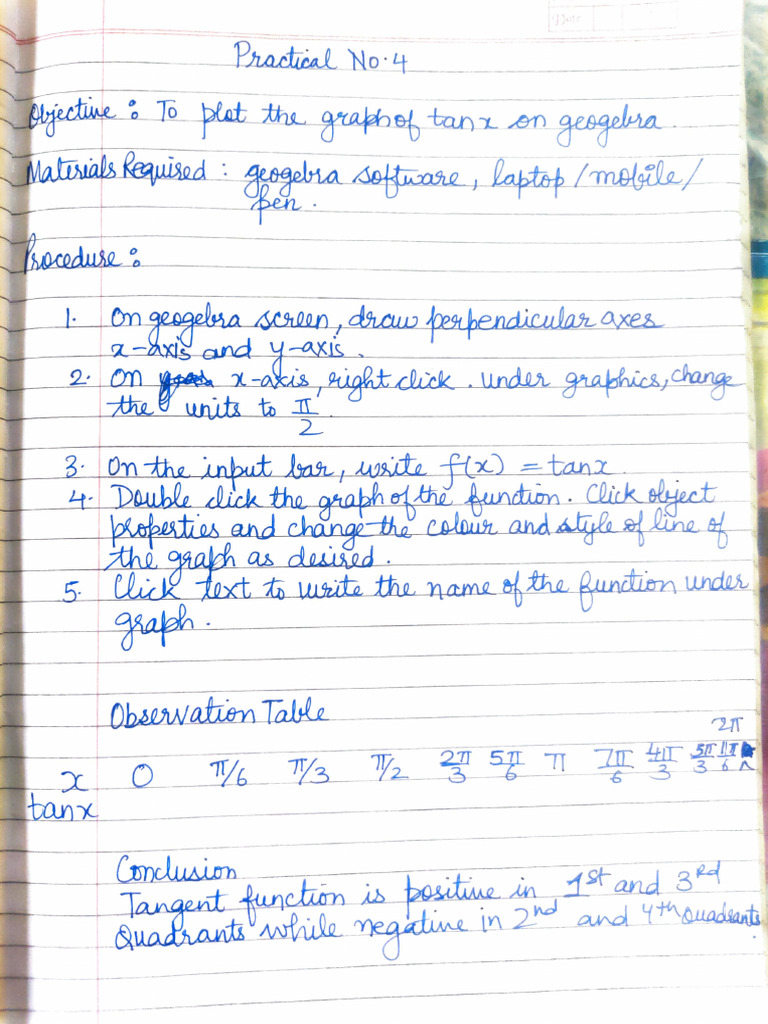 Date
Practical No. 4
Objective : To plot the graph of tan x on geogebra.
Materials Required : geogebra software, laptop/mobile/
pen.
Procedure :
1. On geogebra screen, draw perpendicular axes
x-axis and y-axis.
2. On x-axis, right click. Under graphics, change
the units to π/2.
3. On the input bar, write f(x) = tan x.
4. Double click the graph of the function. Click object
properties and change the colour and style of line of
the graph as desired.
5. Click text to write the name of the function under
graph.
Observation Table
x 0 π/6 π/3 π/2 2π/3 5π/6 π 7π/6 4π/3 5π/3 11π/6 2π
tan x
Conclusion
Tangent function is positive in 1st and 3rd
Quadrants while negative in 2nd and 4th Quadrants.